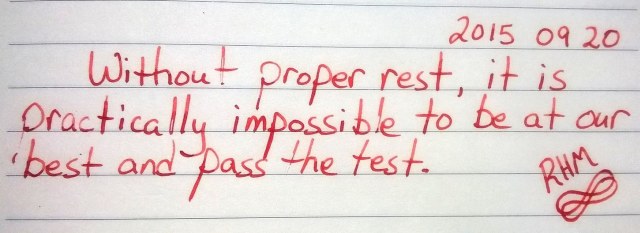 2015 09 20
Without proper rest, it is
practically impossible to be at our
best and pass the test.
RHM